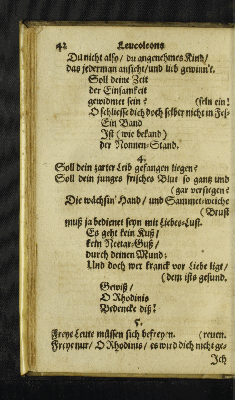 42 Leucoleons
Du nicht also / du angenehmes Kind /
das jederman ansicht / und lieb gewinnt.
Soll deine Zeit
der Einsamkeit
gewidmet sein? (seln ein!
O schliesse dich doch selber nicht in Fel-
Ein Band
Ist (wie bekand)
der Nonnen-Stand.
4.
Soll dein zarter Leib gefangen liegen?
Soll dein junges frisches Blut so gantz und
(gar versiegen?
Die wächsin' Hand / und Sammet-weiche
(Brust
muß ja bedienet seyn mit Liebes-Lust.
Es geht kein Kuß /
kein Nectar-Guß /
durch deinen Mund:
Und doch wer kranck vor Liebe ligt /
(dem ists gesund.
Gewiß /
O Rhodinis
Bedencke diß!
5.
Freye Leute müssen sich befreyen. (reuen.
Freye nur / O Rhodinis / es wird dich nicht ge-
Ich